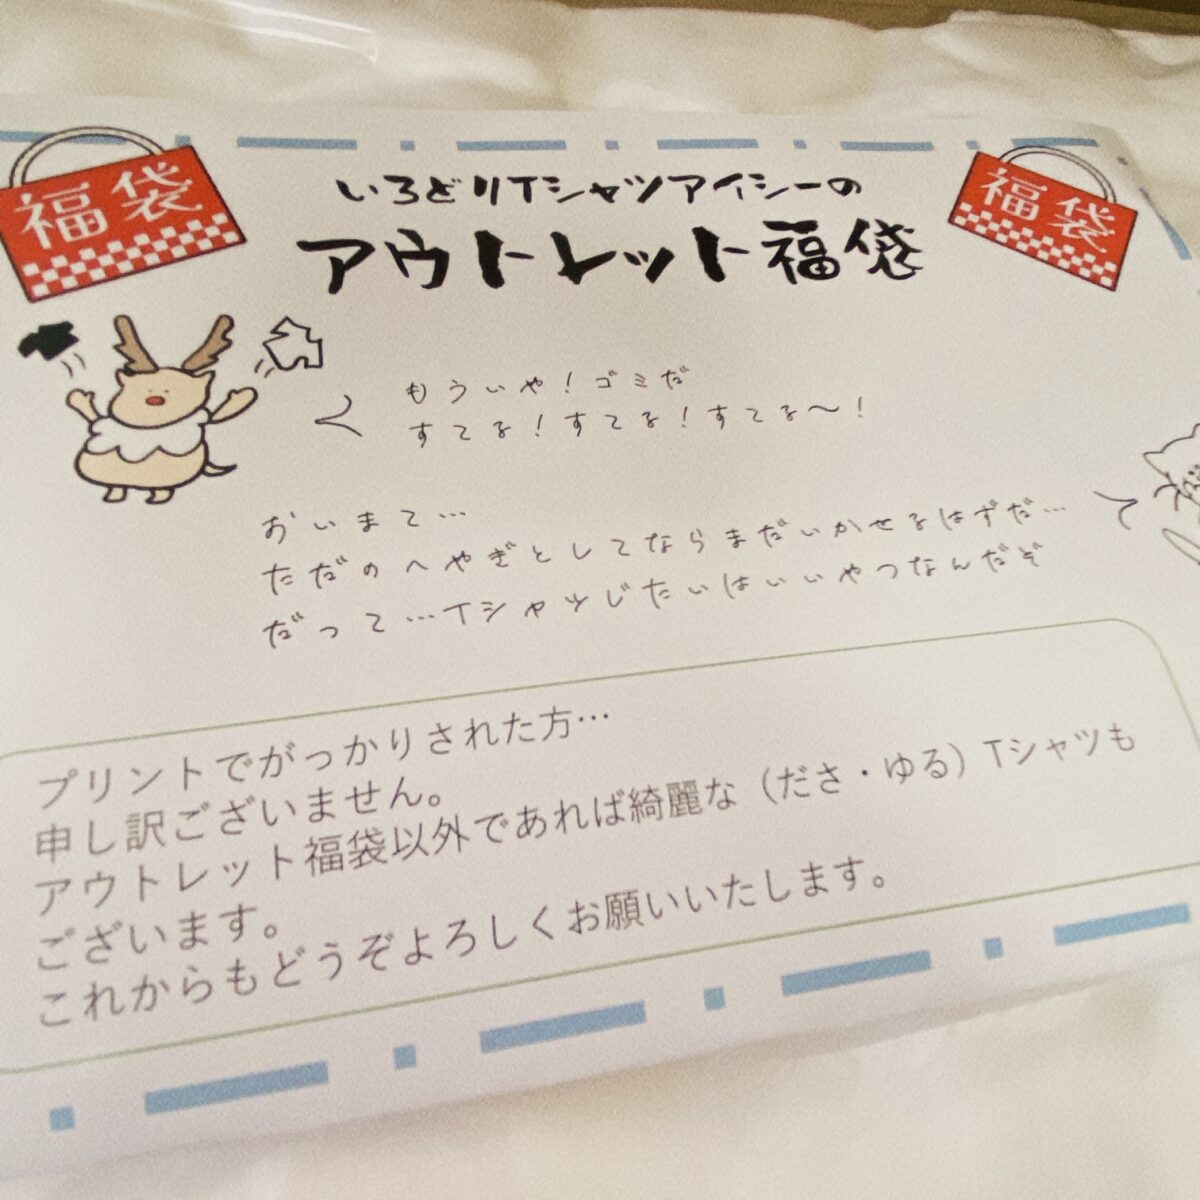 福袋
福袋
いろどりTシャツアイシーの
アウトレット福袋
もういや！ゴミだ
すてる！すてる！すてる〜！
おいまて…
ただのへやぎとしてならまだいかせるはずだ…
だって…Tシャツじたいはいいやつなんだぞ
プリントでがっかりされた方…
申し訳ございません。
アウトレット福袋以外であれば綺麗な（ださ・ゆる）Tシャツも
ございます。
これからもどうぞよろしくお願いいたします。